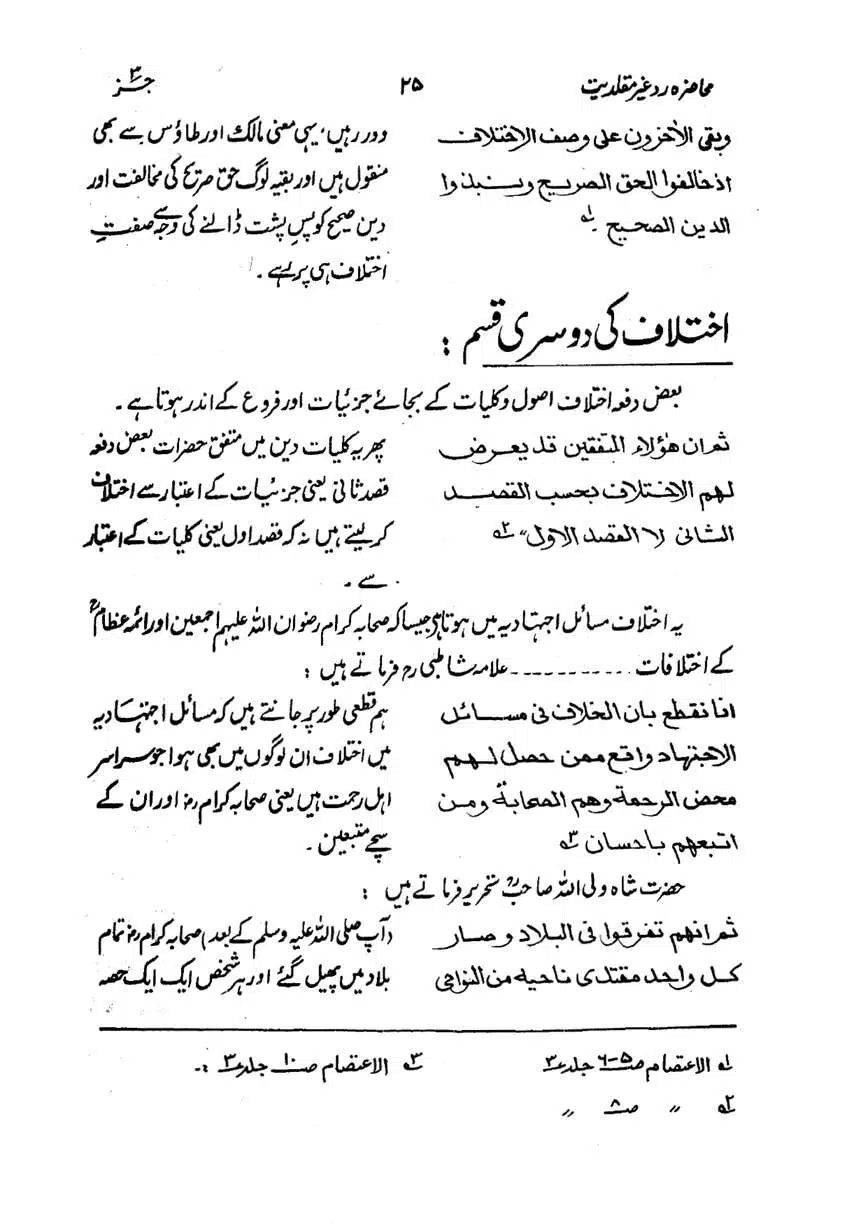 محاضرہ رد غیر مقلدیت ۲۵ جز ۳
وبقی الاٰخرون علی وصف الاختلاف
اذخالفوا الحق الصریح ونبذوا
الدین الصحیح ۔ ۱ہ
دور رہیں، یہی معنی مالک اور طاؤس سے بھی
منقول ہیں اور بقیہ لوگ حق صریح کی مخالفت اور
دین صحیح کو پسِ پشت ڈالنے کی وجہ سے صفتِ
اختلاف ہی پر رہے ۔
اختلاف کی دوسری قسم :
بعض دفعہ اختلاف اصول و کلیات کے بجائے جزئیات اور فروع کے اندر ہوتا ہے ۔
ثم ان ھؤلاء المتفقین قد یعرض
لھم الاختلاف بحسب القصد
الثانی لا القصد الاول" ۲ہ
پھر یہ کلیات دین میں متفق حضرات بعض دفعہ
قصد ثانی یعنی جزئیات کے اعتبار سے اختلاف
کر لیتے ہیں نہ کہ قصد اول یعنی کلیات کے اعتبار
سے ۔
یہ اختلاف مسائل اجتہادیہ میں ہوتا ہے جیسا کہ صحابہ کرام رضوان اللہ علیہم اجمعین اور ائمہ عظامؒ
کے اختلافات ۔۔۔۔۔۔۔۔۔۔ علامہ شاطبی رح فرماتے ہیں :
انا نقطع بان الخلاف فی مسائل
الاجتہاد واقع ممن حصل لہم
محض الرحمة وھم الصحابة ومن
اتبعھم باحسان ۳ہ
ہم قطعی طور پر جانتے ہیں کہ مسائل اجتہادیہ
میں اختلاف ان لوگوں میں بھی ہوا جو سراسر
اہل رحمت ہیں یعنی صحابہ کرام رضہ اور ان کے
سچے متبعین ۔
حضرت شاہ ولی اللہ صاحبؒ تحریر فرماتے ہیں :
ثم انھم تفرقوا فی البلاد وصار
کل واحد مقتدی ناحیہ من النواحی
(آپ صلی اللہ علیہ وسلم کے بعد) صحابہ کرام رضہ تمام
بلاد میں پھیل گئے اور ہر شخص ایک ایک حصہ
۱ہ الاعتصام صـ ۵-۶ جلد ۳
۲ہ 〃 صـ ۸ 〃
۳ہ الاعتصام صـ ۱۰ جلد ۳ :۔